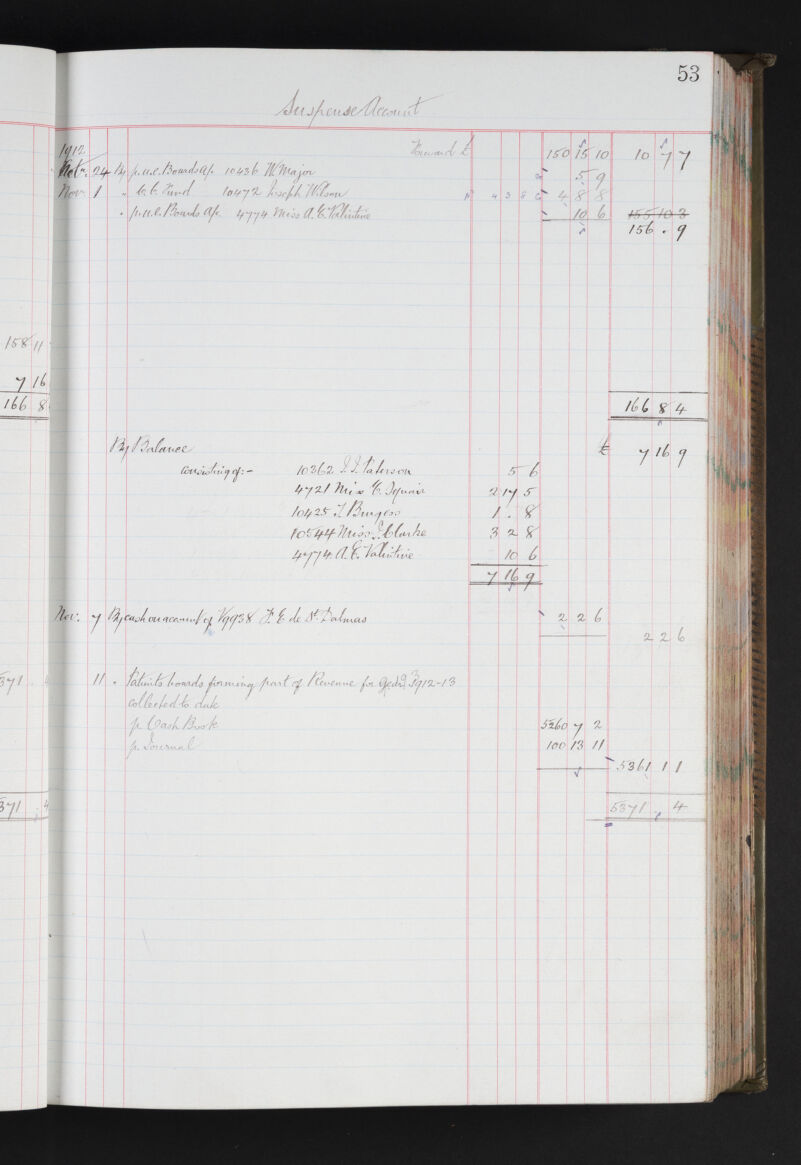 53
Suspense Account
1912 Forward £ 150 15 10 10 7 7
Octr. 24 By p.u.c. Boards a/c 10436 W. Major 5 9
Nov 1 " C.C. Fund 10472 Joseph Wilson 4 8 8
" p.u.c. Boards a/c 4774 Miss A.E. Valintine 10 6 155 10 3
156 . 9
158 11
7 16
166 8
166 8 4
By Balance £ 7 16 9
consisting of:- 10362 J. Paterson 5 6
4721 Miss E. Squair 2 17 5
10425 J. Burgess 1 . 8
10544 Miss J. Clarke 3 2 8
4774 A.E. Valintine 10 6
7 16 9
Nov. 7 By cash on account of 9938 F. E de St Dalmas 2 2 6
2 2 6
371 4
11 " Patients boards forming part of Revenue for 1912-13
collected to date
p Cash Book 5260 7 2
p Journal 100 13 11
5361 1 1
371 4
5371 . 4